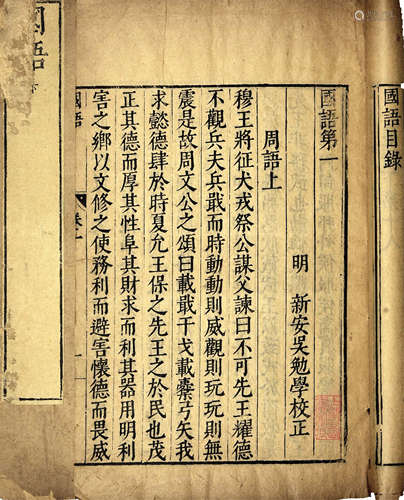 國語目錄
國語第一
明 新安吳勉學校正
周語上
穆王將征犬戎祭公謀父諫曰不可先王耀德
不觀兵夫兵戢而時動動則威觀則玩玩則無
震是故周文公之頌曰載戢干戈載櫜弓矢我
求懿德肆於時夏允王保之先王之於民也茂
正其德而厚其性阜其財求而利其器用明利
害之鄉以文修之使務利而避害懷德而畏威
國語 卷一 一
國語